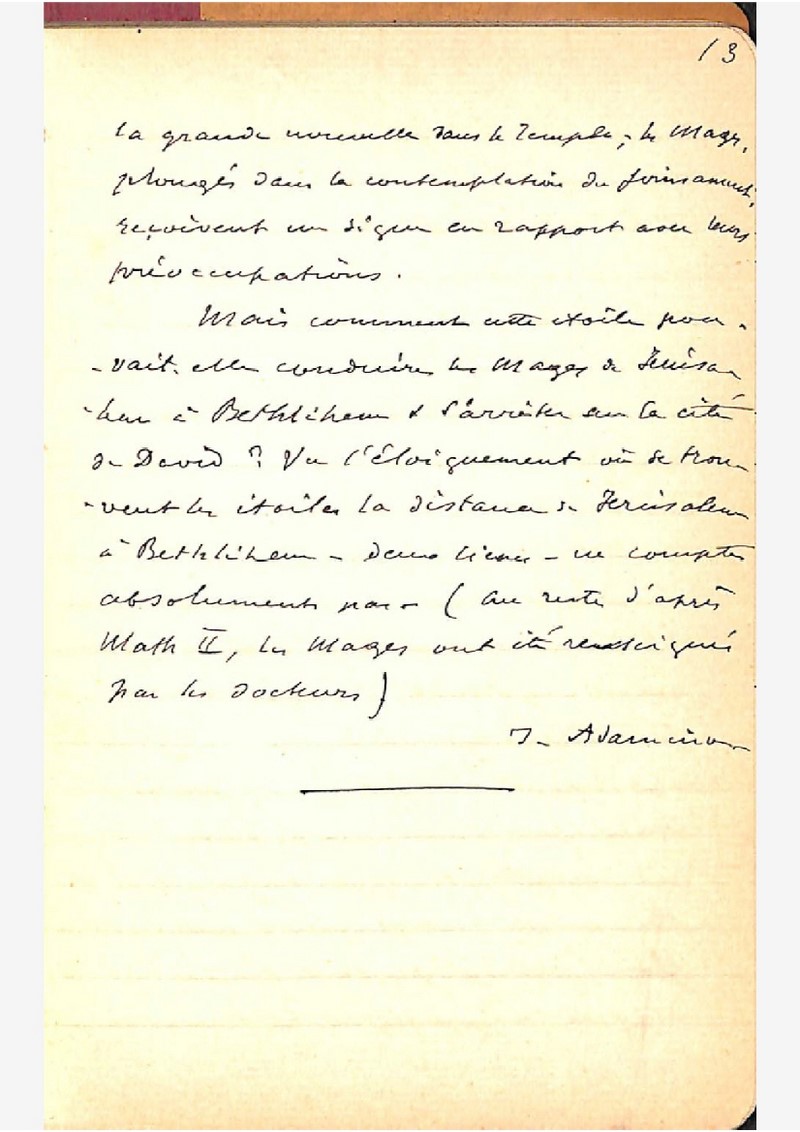 13
la grande nouvelle dans le Temple; les Mages,
plongés dans la contemplation du firmament,
reçoivent un signe en rapport avec leurs
préoccupations.
Mais comment cette étoile pou-
-vait-elle conduire les Mages de Jérusa
-lem à Bethléhem & s'arrêter sur la cité
de David ? Vu l'éloignement où se trou-
-vent les étoiles la distance de Jérusalem
à Bethléhem - deux lieues - ne compte
absolument pas - (Au reste d'après
Math II, les Mages ont été renseignés
par les docteurs)